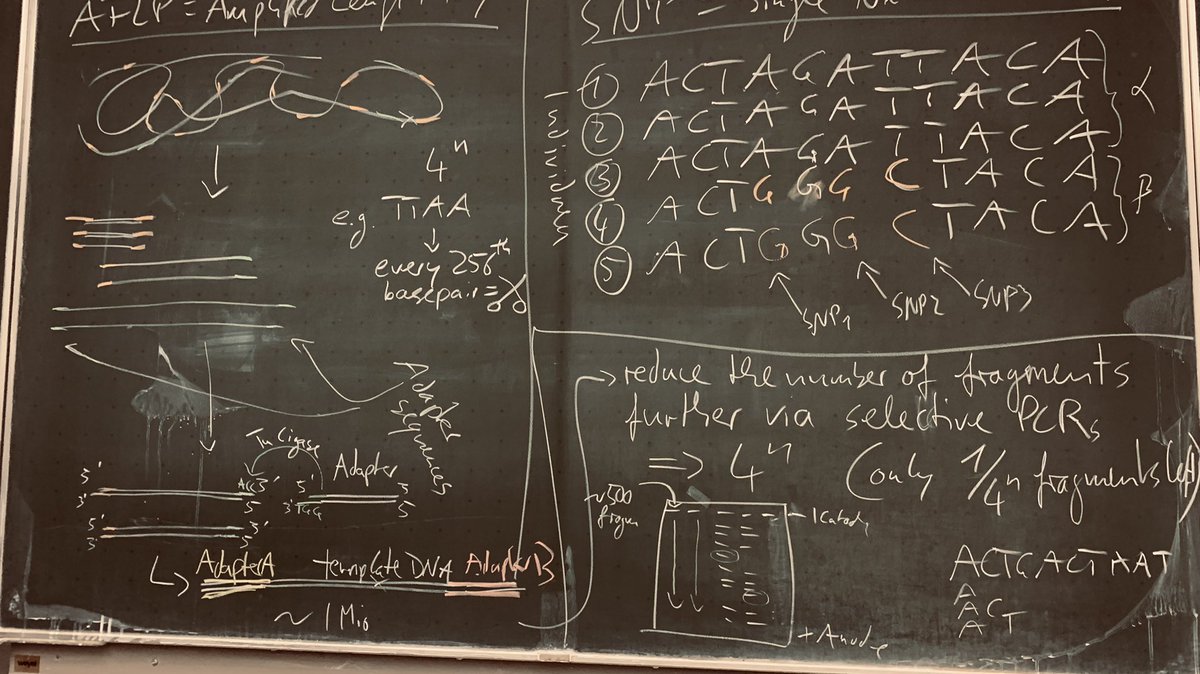 AFLP = Amplified
4ⁿ
e.g. TTAA
every 256th
basepair =
Adapter
sequences
Ligase
Adapter
3' ACC3' 5' 5'
3' 5' 3'TGG 5'
5' 3'
3' 5'
Adapter A template DNA Adapter B
~ 1 Mio
SNP = single
Individuum
① ACTAGATTACA
② ACTAGATTACA α
③ ACTAGATTACA
④ ACTGGGCTACA β
⑤ ACTGGGCTACA
SNP1 SNP2 SNP3
→ reduce the number of fragments
further via selective PCRs
=> 4ⁿ (only 1/4ⁿ fragments left)
~500
- Katode
+ Anode
ACTGACTAAT
A
AC
ACT